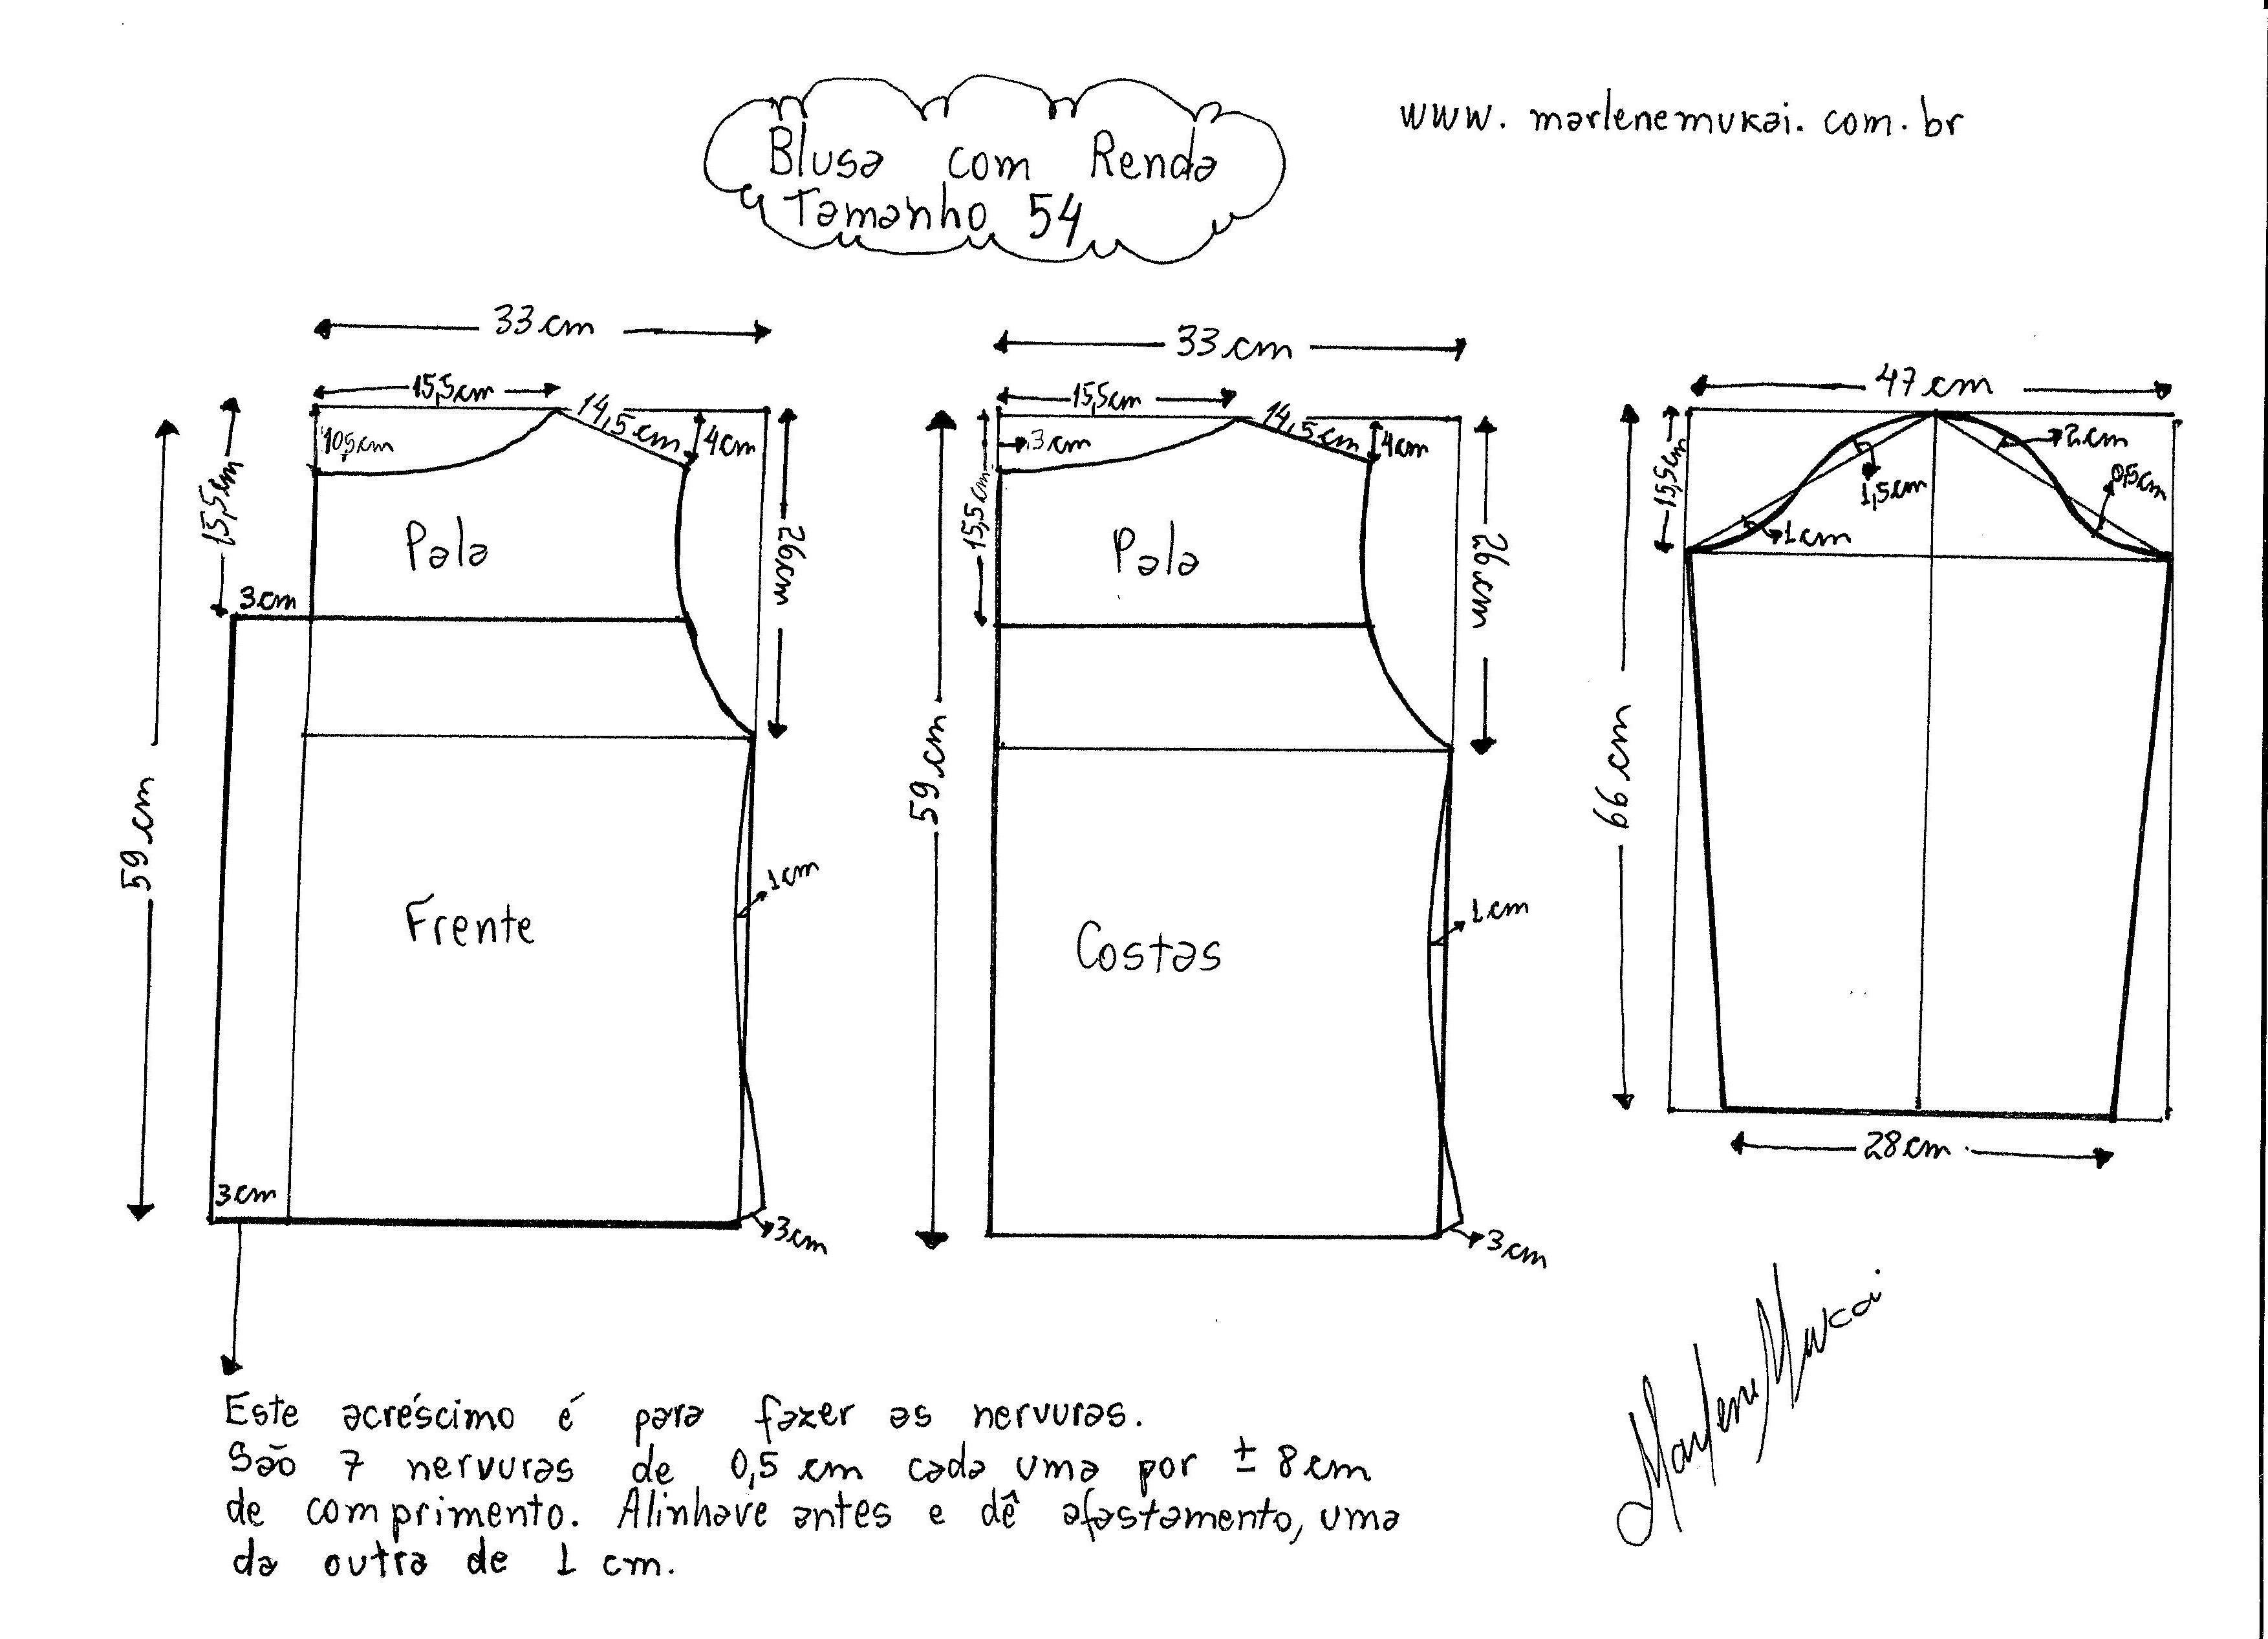 www.marlenemukai.com.br
Blusa com Renda
Tamanho 54
33 cm
15,5cm
14,5cm
4cm
10,5cm
15,5cm
26cm
Pala
3cm
59 cm
Frente
1cm
3cm
3cm
33 cm
15,5cm
14,5cm
4cm
3cm
15,5cm
26cm
Pala
59 cm
Costas
1cm
3cm
47 cm
15,5cm
2cm
1,5cm
0,5cm
1cm
66 cm
28cm
Este acréscimo é para fazer as nervuras.
São 7 nervuras de 0,5 cm cada uma por ± 8cm
de comprimento. Alinhave antes e dê afastamento, uma
da outra de 1 cm.
Marlene Mukai